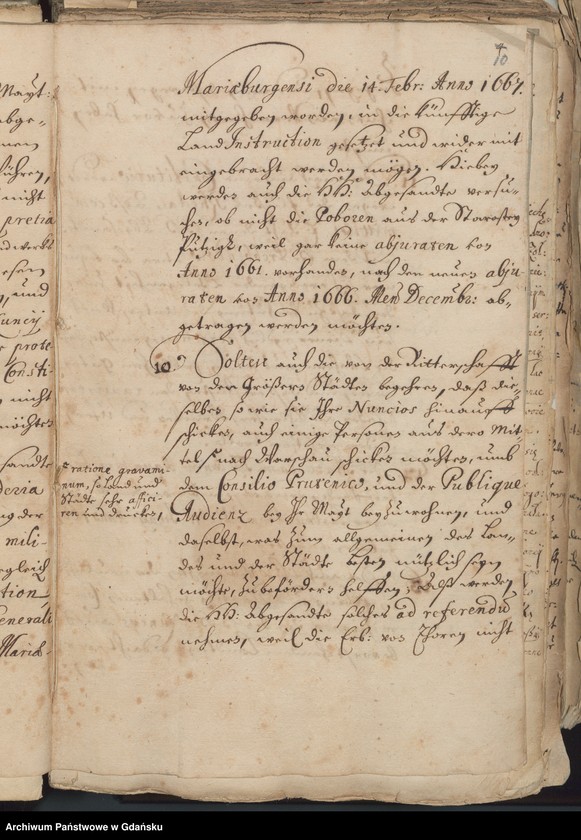 10
Mariæburgensi die 14. Febr: Anno 1667.
mitgegeben worden, in die künfftige
Land Instruction gesetzet und wieder mit
eingebracht werden mögen. Hiebey
werden auch die HH: Abgesandte versu-
chen, ob nicht die Poboren aus der Starostey
Putzigk, weil gar keine abjuraten von
Anno 1661. vorhanden, nach den neuen abju-
raten von Anno 1666. Men Decembr: ab-
getragen werden möchten.
10 Solten auch die von der Ritterschafft
von den Größern Städten begehren, daß die-
selben, so wie sie Ihre Nuncios hinauff
schicken, auch einige Personen aus dero Mit-
tel nach Warschau schicken möchten, umb
dem Consilio Prutenico, und der Publique
Audienz bey Ihr Mayt beyzuwohnen, und
daselbst, was zum allgemeinen des Lan-
des und der Städte besten nützlich seyn
möchte, zubefördern helffen; Alß werden
die HH: Abgesandte solches ad referendū
nehmen, weil die Erb: von Thoren nicht
ratione gravami-
num, so Land und
Städte sehr affici-
ren und drucken,
Mayt:
abge-
nen
führen,
nicht
pretia
esen
und
Nuncij
prote
Consti-
nicht
möchten
sandte
ng der
mili-
tion
enerali
Mariæ-
Archiwum Państwowe w Gdańsku